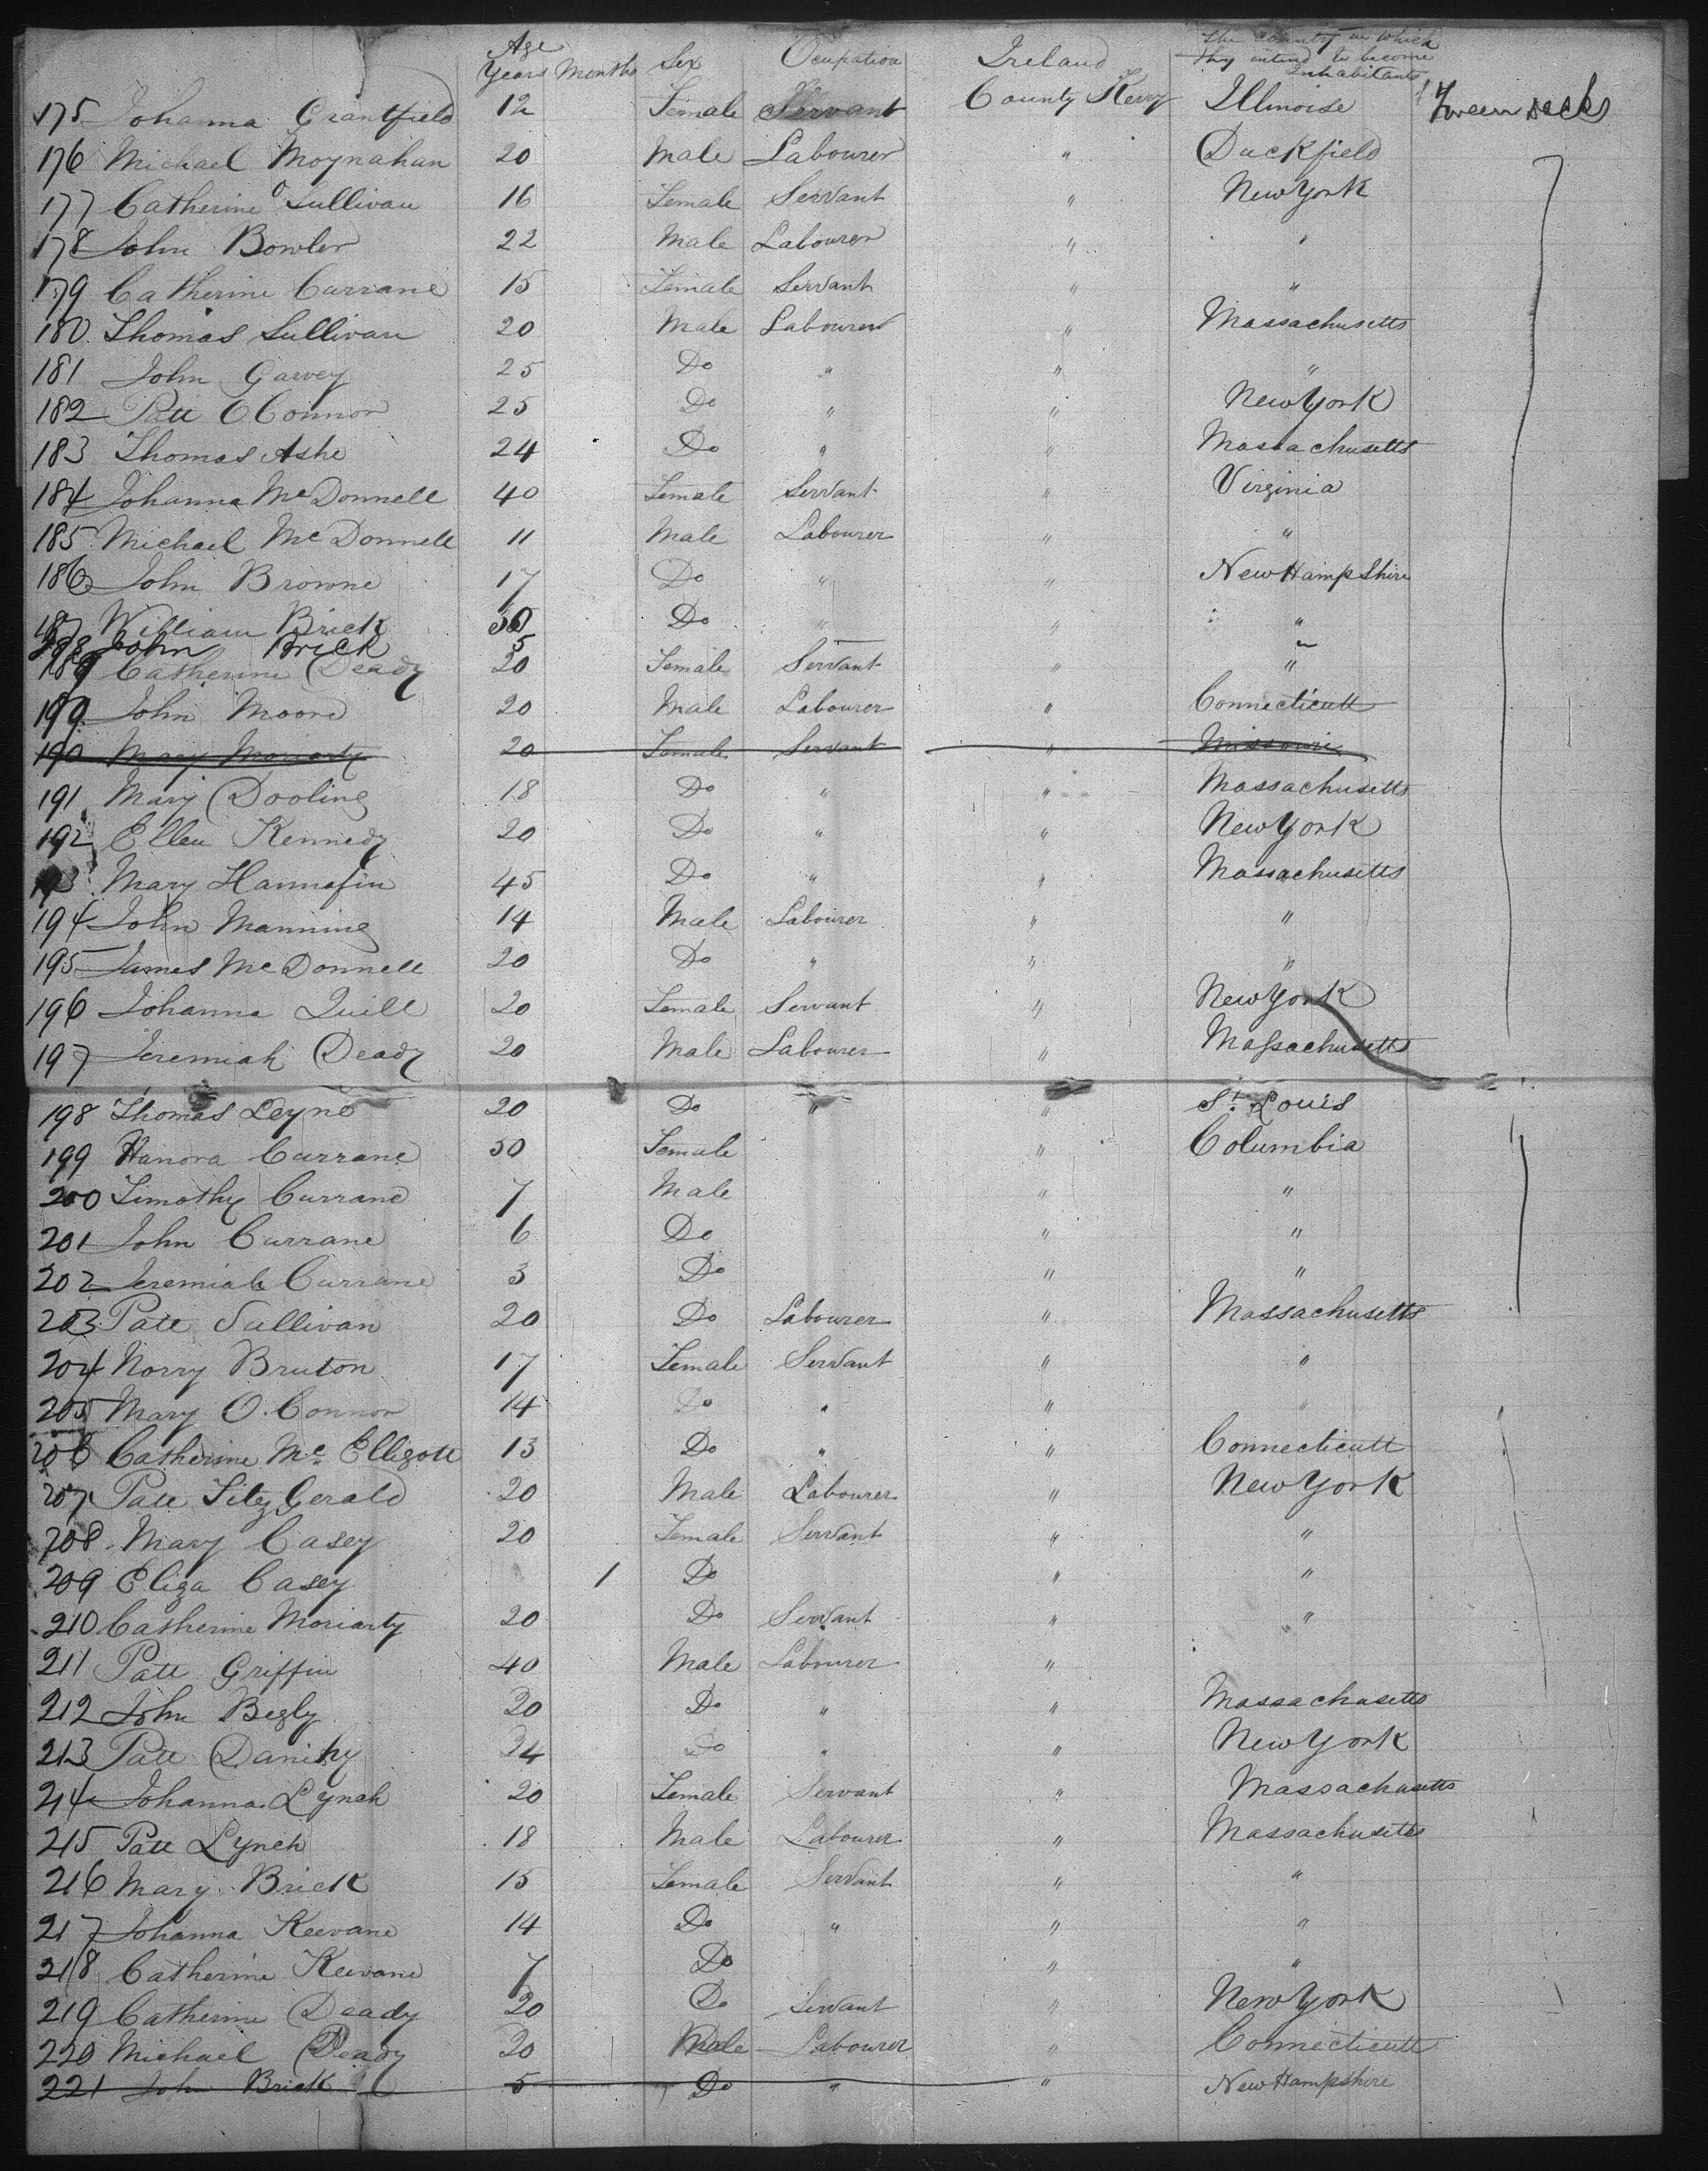 Age Years Months Sex Ocupation Ireland The County in which they intend to become Inhabitants
175 Johanna Grantfield 12 Female Servant County Kerry Illinoise Tween decks
176 Michael Moynahan 20 Male Labourer " Duckfield
177 Catherine O Sullivan 16 Female Servant " New York
178 John Bowler 22 Male Labourer " "
179 Catherine Currane 15 Female Servant " "
180. Thomas Sullivan 20 Male Labourer " Massachusetts
181 John Garvey 25 Do " " "
182 Patt O Connor 25 Do " " New York
183 Thomas Ashe 24 Do " " Massachusetts
184 Johanna Mc Donnell 40 Female Servant " Virginia
185 Michael Mc Donnell 11 Male Labourer " "
186 John Browne 17 Do " " New Hampshire
187 William Brick 30 Do " " "
188 John Brick 5 "
189 Catherine Deady 20 Female Servant " "
190. John Moore 20 Male Labourer " Connecticutt
190 Mary Moriarty 20 Female Servant " Missouri
191 Mary Dooling 18 Do " " Massachusetts
192 Ellen Kennedy 20 Do " " New York
193 Mary Hannafin 45 Do " " Massachusetts
194 John Manning 14 Male Labourer " "
195 James Mc Donnell 20 Do " " "
196 Johanna Quill 20 Female Servant " New York
197 Jeremiah Deady 20 Male Labourer " Massachusetts
198 Thomas Leyne 20 Do " " St. Louis
199 Hanora Currane 30 Female " Columbia
200 Timothy Currane 7 Male " "
201 John Currane 6 Do " "
202 Jeremiah Currane 3 Do " "
203 Patt Sullivan 20 Do Labourer " Massachusetts
204 Norry Bruton 17 Female Servant " "
205 Mary O. Connor 14 Do " " "
206 Catherine Mc Elligott 13 Do " " Connecticutt
207 Patt Fitz Gerald 20 Male Labourer " New York
208. Mary Casey 20 Female Servant " "
209 Eliza Casey 1 Do " "
210 Catherine Moriarty 20 Do Servant " "
211 Patt Griffin 40 Male Labourer "
212 John Begly 20 Do " " Massachusetts
213 Patt Danihy 24 Do " " New York
214 Johanna Lynch 20 Female Servant " Massachusetts
215 Patt Lynch 18 Male Labourer " Massachusetts
216 Mary Brick 15 Female Servant " "
217 Johanna Keevane 14 Do " " "
218 Catherine Keevane 7 Do " "
219 Catherine Deady 20 Do Servant " New York
220 Michael Deady 20 Male Labourer " Connecticutt
221 John Brick 5 Do " " New Hampshire